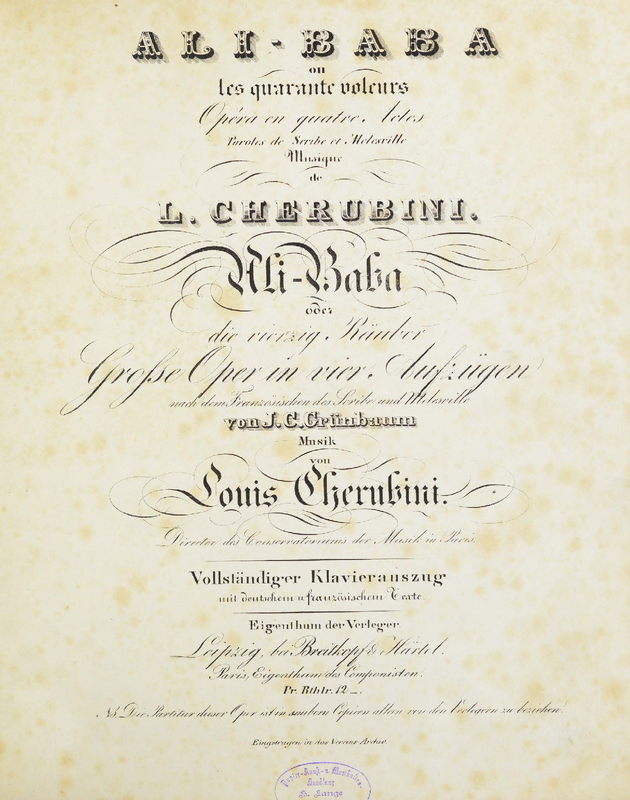 ALI-BABA
ou
les quarante voleurs
Opéra en quatre Actes
Paroles de Scribe et Mélesville
Musique
de
L. CHERUBINI.
Ali-Baba
oder
die vierzig Räuber
Große Oper in vier Aufzügen
nach dem Französischen des Scribe und Mélesville
von J. C. Grünbaum
Musik
von
Louis Cherubini.
Director des Conservatoriums der Musik in Paris.
Vollständiger Klavierauszug
mit deutschem u französischem Texte.
Eigenthum der Verleger
Leipzig, bei Breitkopf & Härtel.
Paris, Eigenthum des Componisten.
Pr. Rthlr. 12 _.
NB. Die Partitur dieser Oper ist in saubern Copieen allein von den Verlegern zu beziehen.
Eingetragen in das Vereins-Archiv.
Handlung
Lange